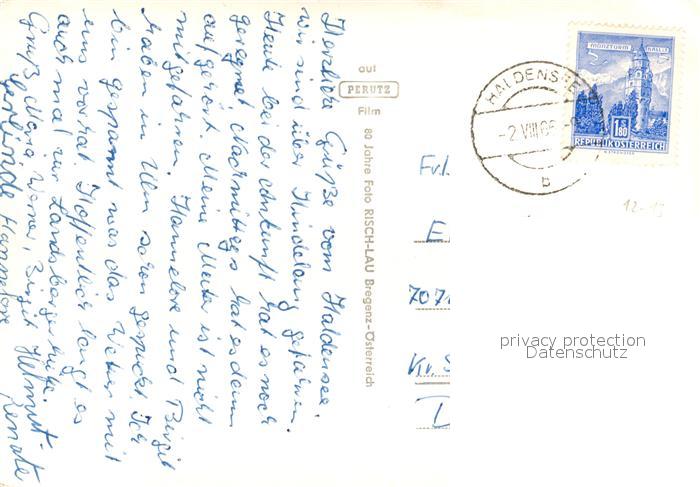 Herzliche Grüße vom Haldensee.
wir sind über Hindelang gefahren.
Heute bei der Ankunft hat es noch
geregnet, Nachmittags hat es dann
aufgehört. Meine Mutter ist nicht
mitgefahren. Hannelore und Birgit
haben in Ulm schon gespuckt. Ich
bin gespannt was das Wetter mit
uns vorhat. Hoffentlich langt es
auch mal zur Landsberger Hütte.
Gruß Maria, Werner, Birgit, Helmut
Gerlinde Hannelore Renate
auf
PERUTZ
Film
80 Jahre Foto RISCH-LAU Bregenz-Österreich
MÜNZTURM HALL i.T.
S 1.80
REPUBLIK ÖSTERREICH
HALDENSEE
-2.VIII.66
b
Frl.
E
707
Kr. S
12-15
privacy protection
Datenschutz